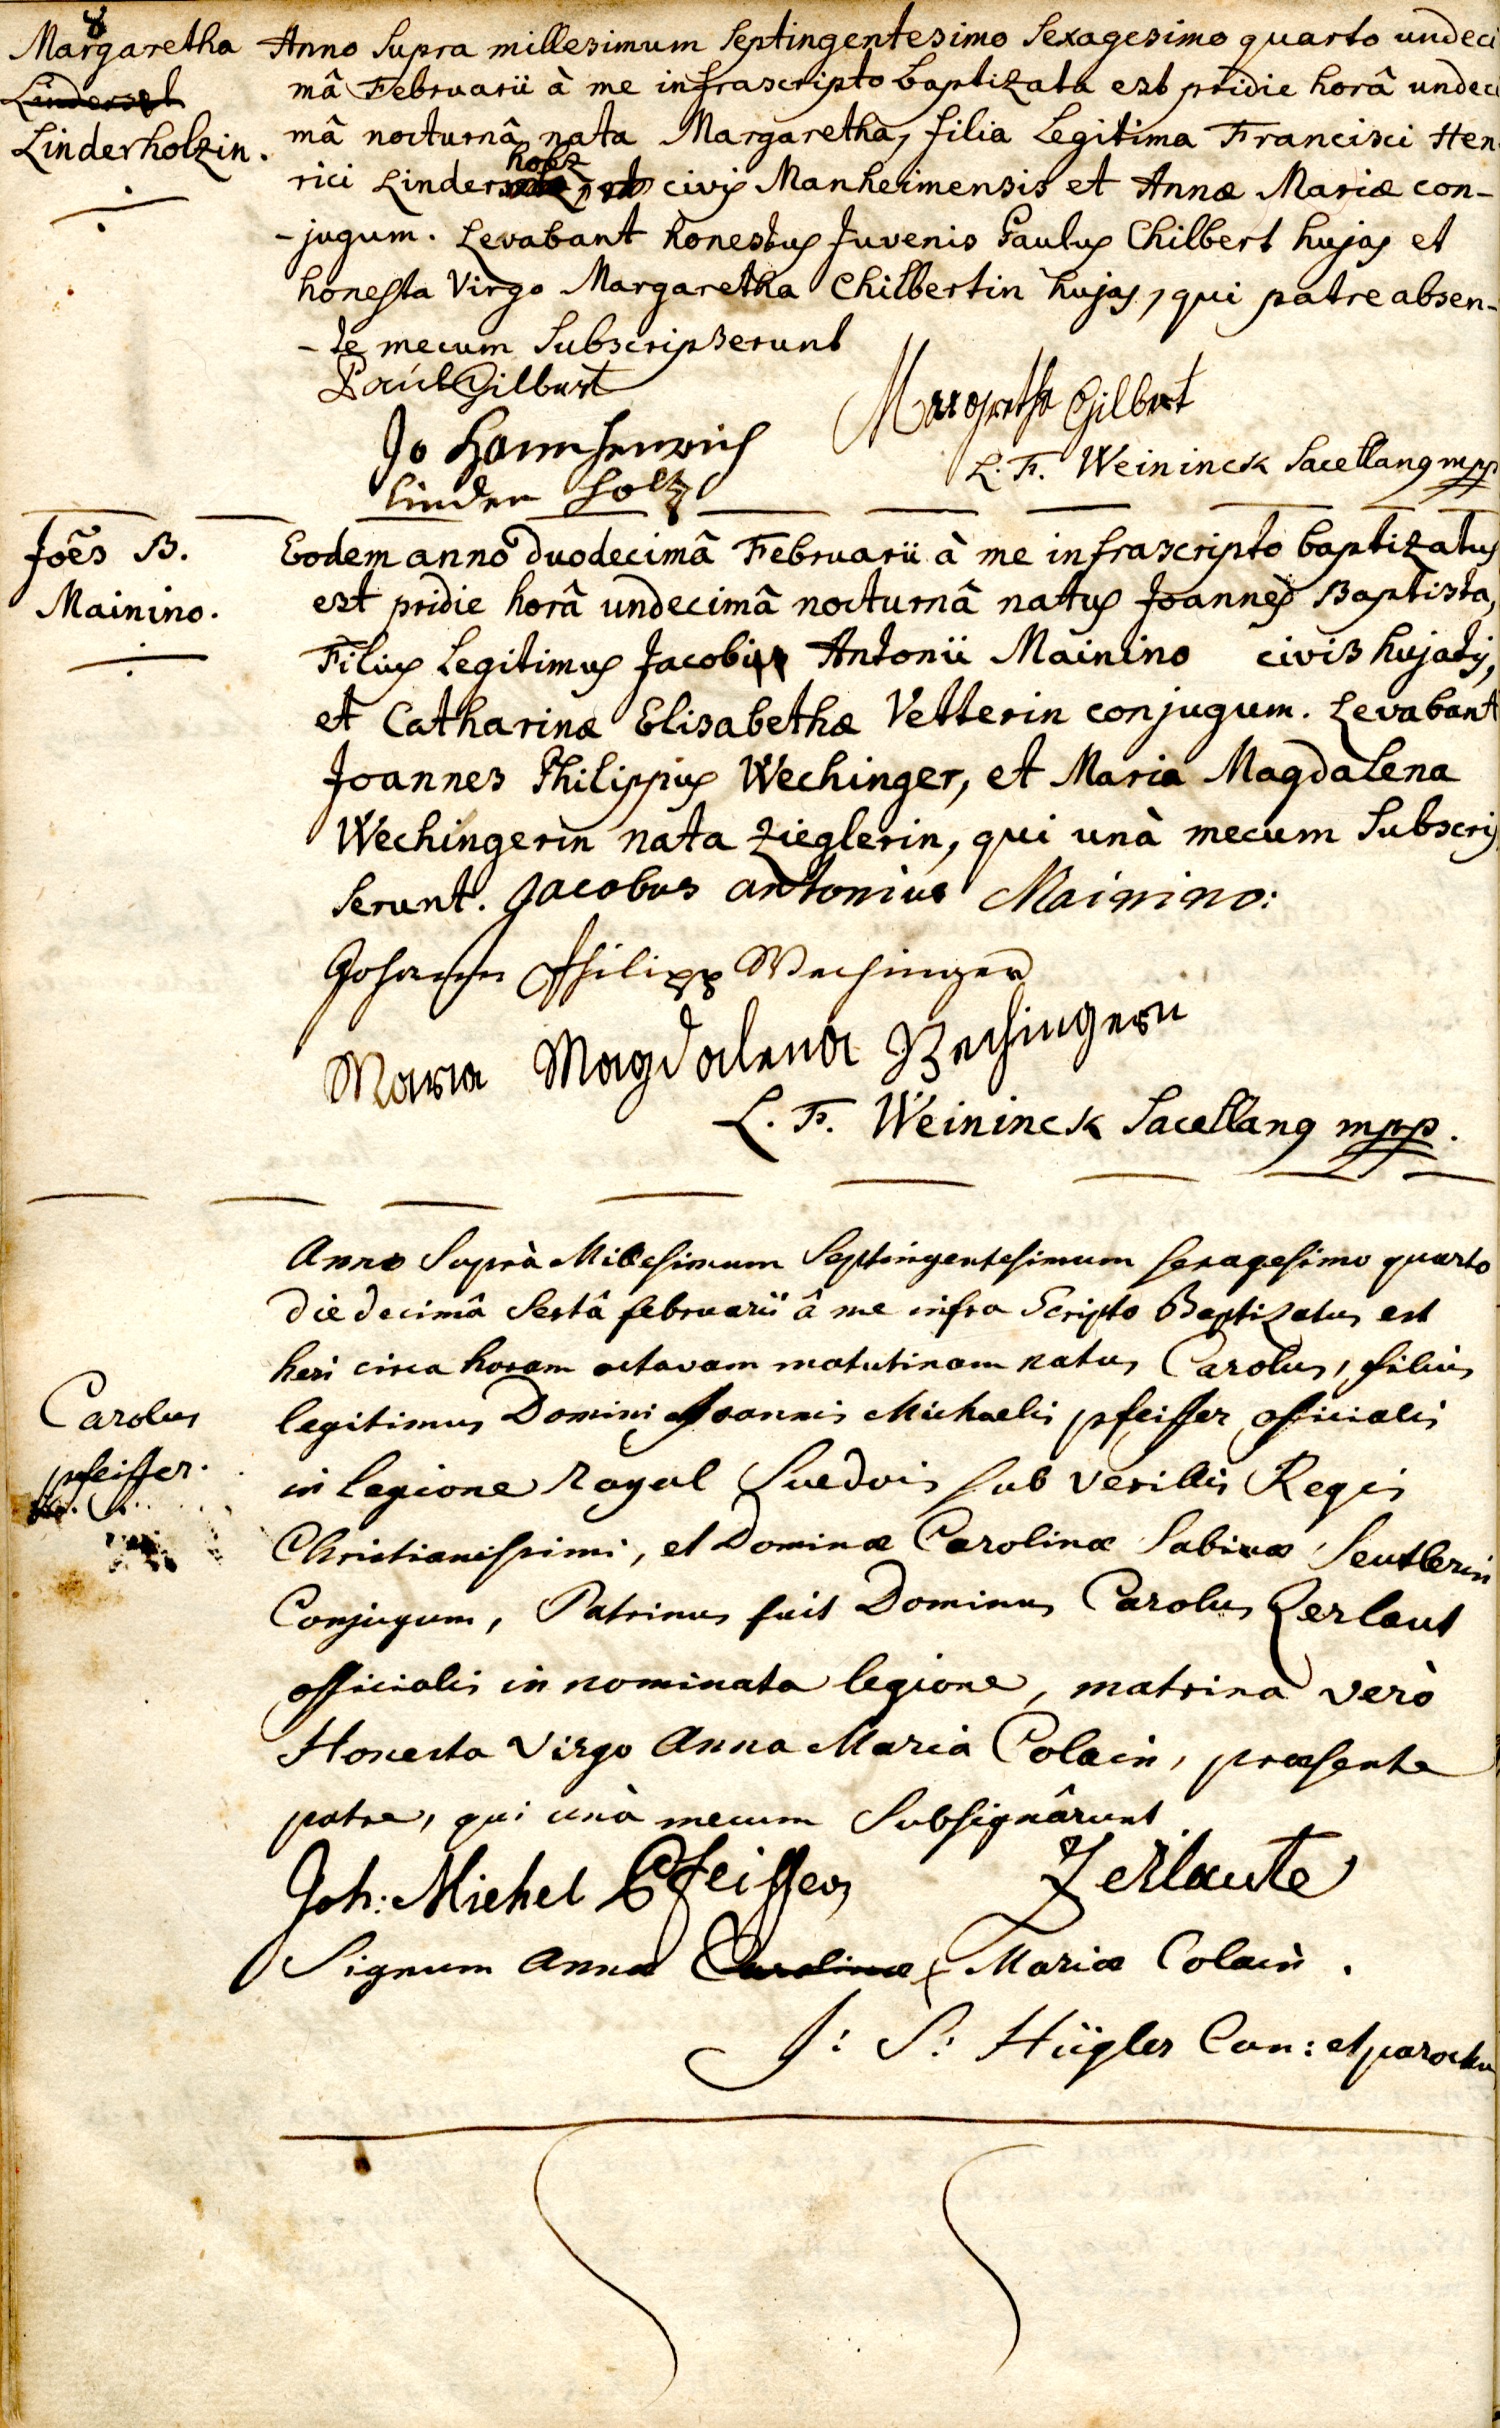 8
Margaretha
Linderholzin.
Anno Supra millesimum Septingentesimo Sexagesimo quarto undeci
mâ Februarii à me infrascripto baptizata est pridie horâ undeci
mâ nocturnâ nata Margaretha, filia Legitima Francisci Hen
rici Linderholz civis Manheimensis et Annæ Mariæ con-
-jugum. Levabant honestus Juvenis Paulus Chilbert hujas et
honesta Virgo Margaretha Chilbertin hujas, qui patre absen-
-te mecum Subscripserunt
Paul Gilbert
Margretha Gilbert
Jo Hann Henrich
linder holtz
L. F. Weininck Sacellanus mpp
Joês B.
Mainino.
Eodem anno duodecimâ Februarii à me infrascripto baptizatus
est pridie horâ undecimâ nocturnâ natus Joannes Baptista,
Filius Legitimus Jacobi Antonii Mainino civis hujatis,
et Catharinæ Elisabethæ Vetterin conjugum. Levabant
Joannes Philippus Wechinger, et Maria Magdalena
Wechingerin nata Zieglerin, qui unà mecum Subscrip
serunt. Jacobus antonius Mainino:
Johann Philipp Wechinger
Maria Magdalena Wechingern
L. F. Weininck Sacellanus mpp.
Carolus
pfeiffer.
Anno Suprà Millesimum Septingentesimum sexagesimo quarto
die decimâ Sextâ februarii â me infra Scripto Baptizatus est
heri circa horam octavam matutinam natus Carolus, filius
legitimus Domini Joannis Michaelis pfeiffer officialis
in legione Royal Suedois sub vexillis Regis
Christianissimi, et Dominæ Carolinæ Sabinæ Seutlerin
Conjugum, Patrinus fuit Dominus Carolus Zerlaut
officialis in nominata legione, matrina verò
Honesta Virgo Anna Maria Colain, præsente
patre, qui unà mecum Subsignârunt
Joh: Michel Pfeiffer
Zerlaute
Signum Annæ Carolinæ x Mariæ Colain.
J: S: Hügler Can: et parochus